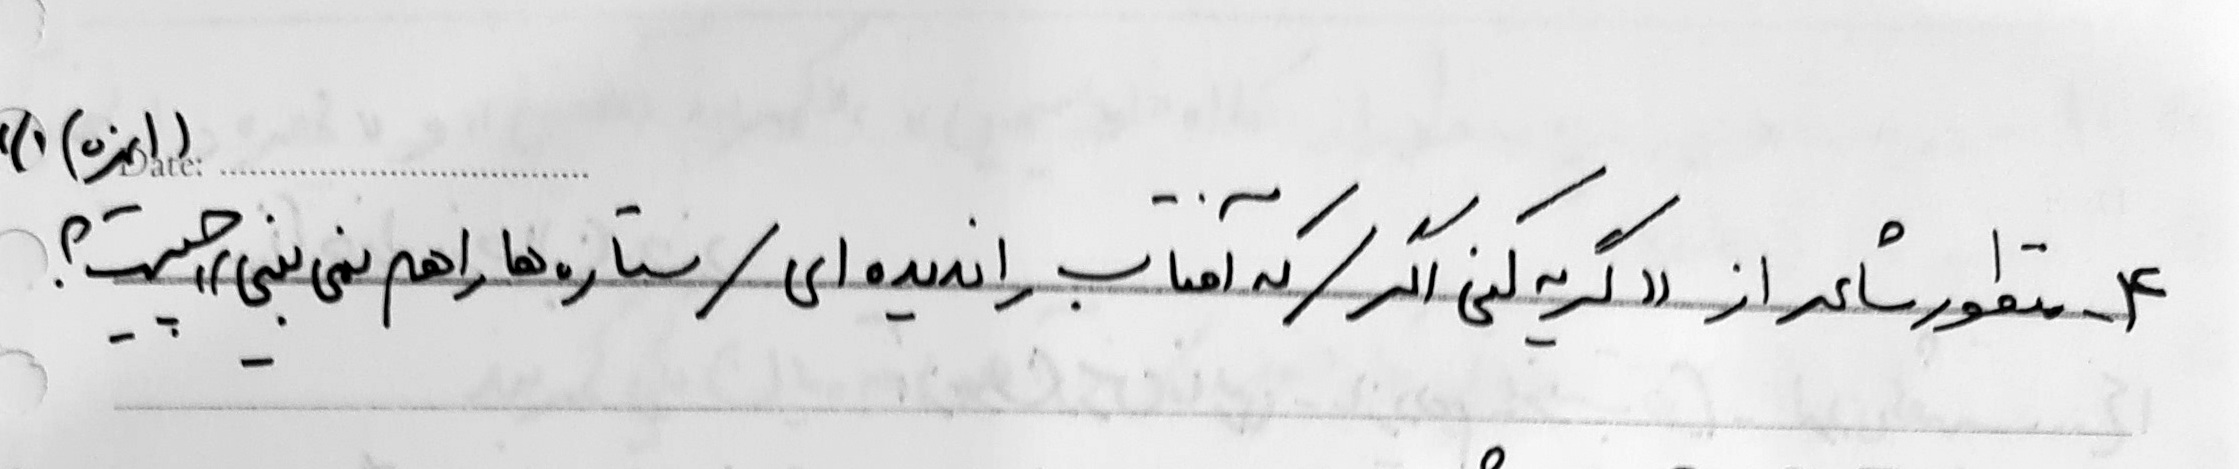 (۱ نمره)
Date:
۴- منظور شاعر از «گریه کنی اگر / که آفتاب را ندیده ای / ستاره ها را هم نمی بینی» چیست؟